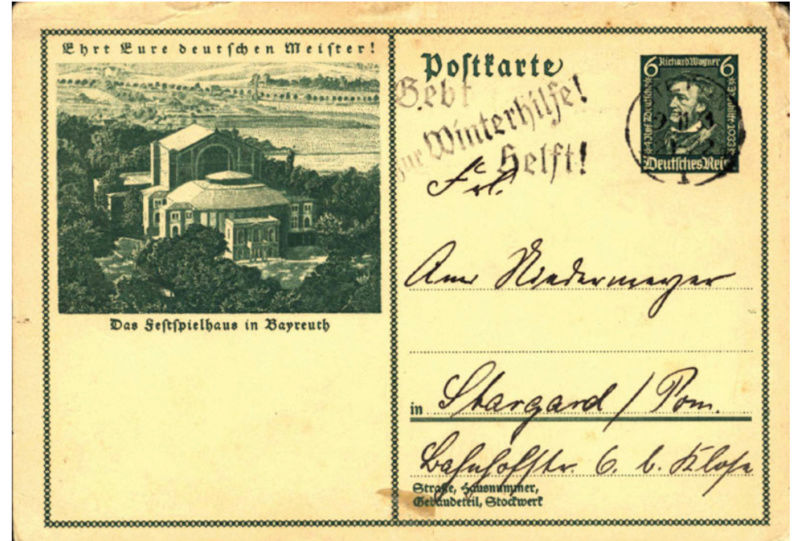 Ehrt Eure deutschen Meister!
Das Festspielhaus in Bayreuth
Postkarte
6 Richard Wagner 6
Deutsches Reich
Gebt
zur Winterhilfe!
Helft!
Frl.
Niedermeyer
in Stargard / Pom.
Bahnhofstr. 6. b. Klose
Straße, Hausnummer,
Gebäudeteil, Stockwerk